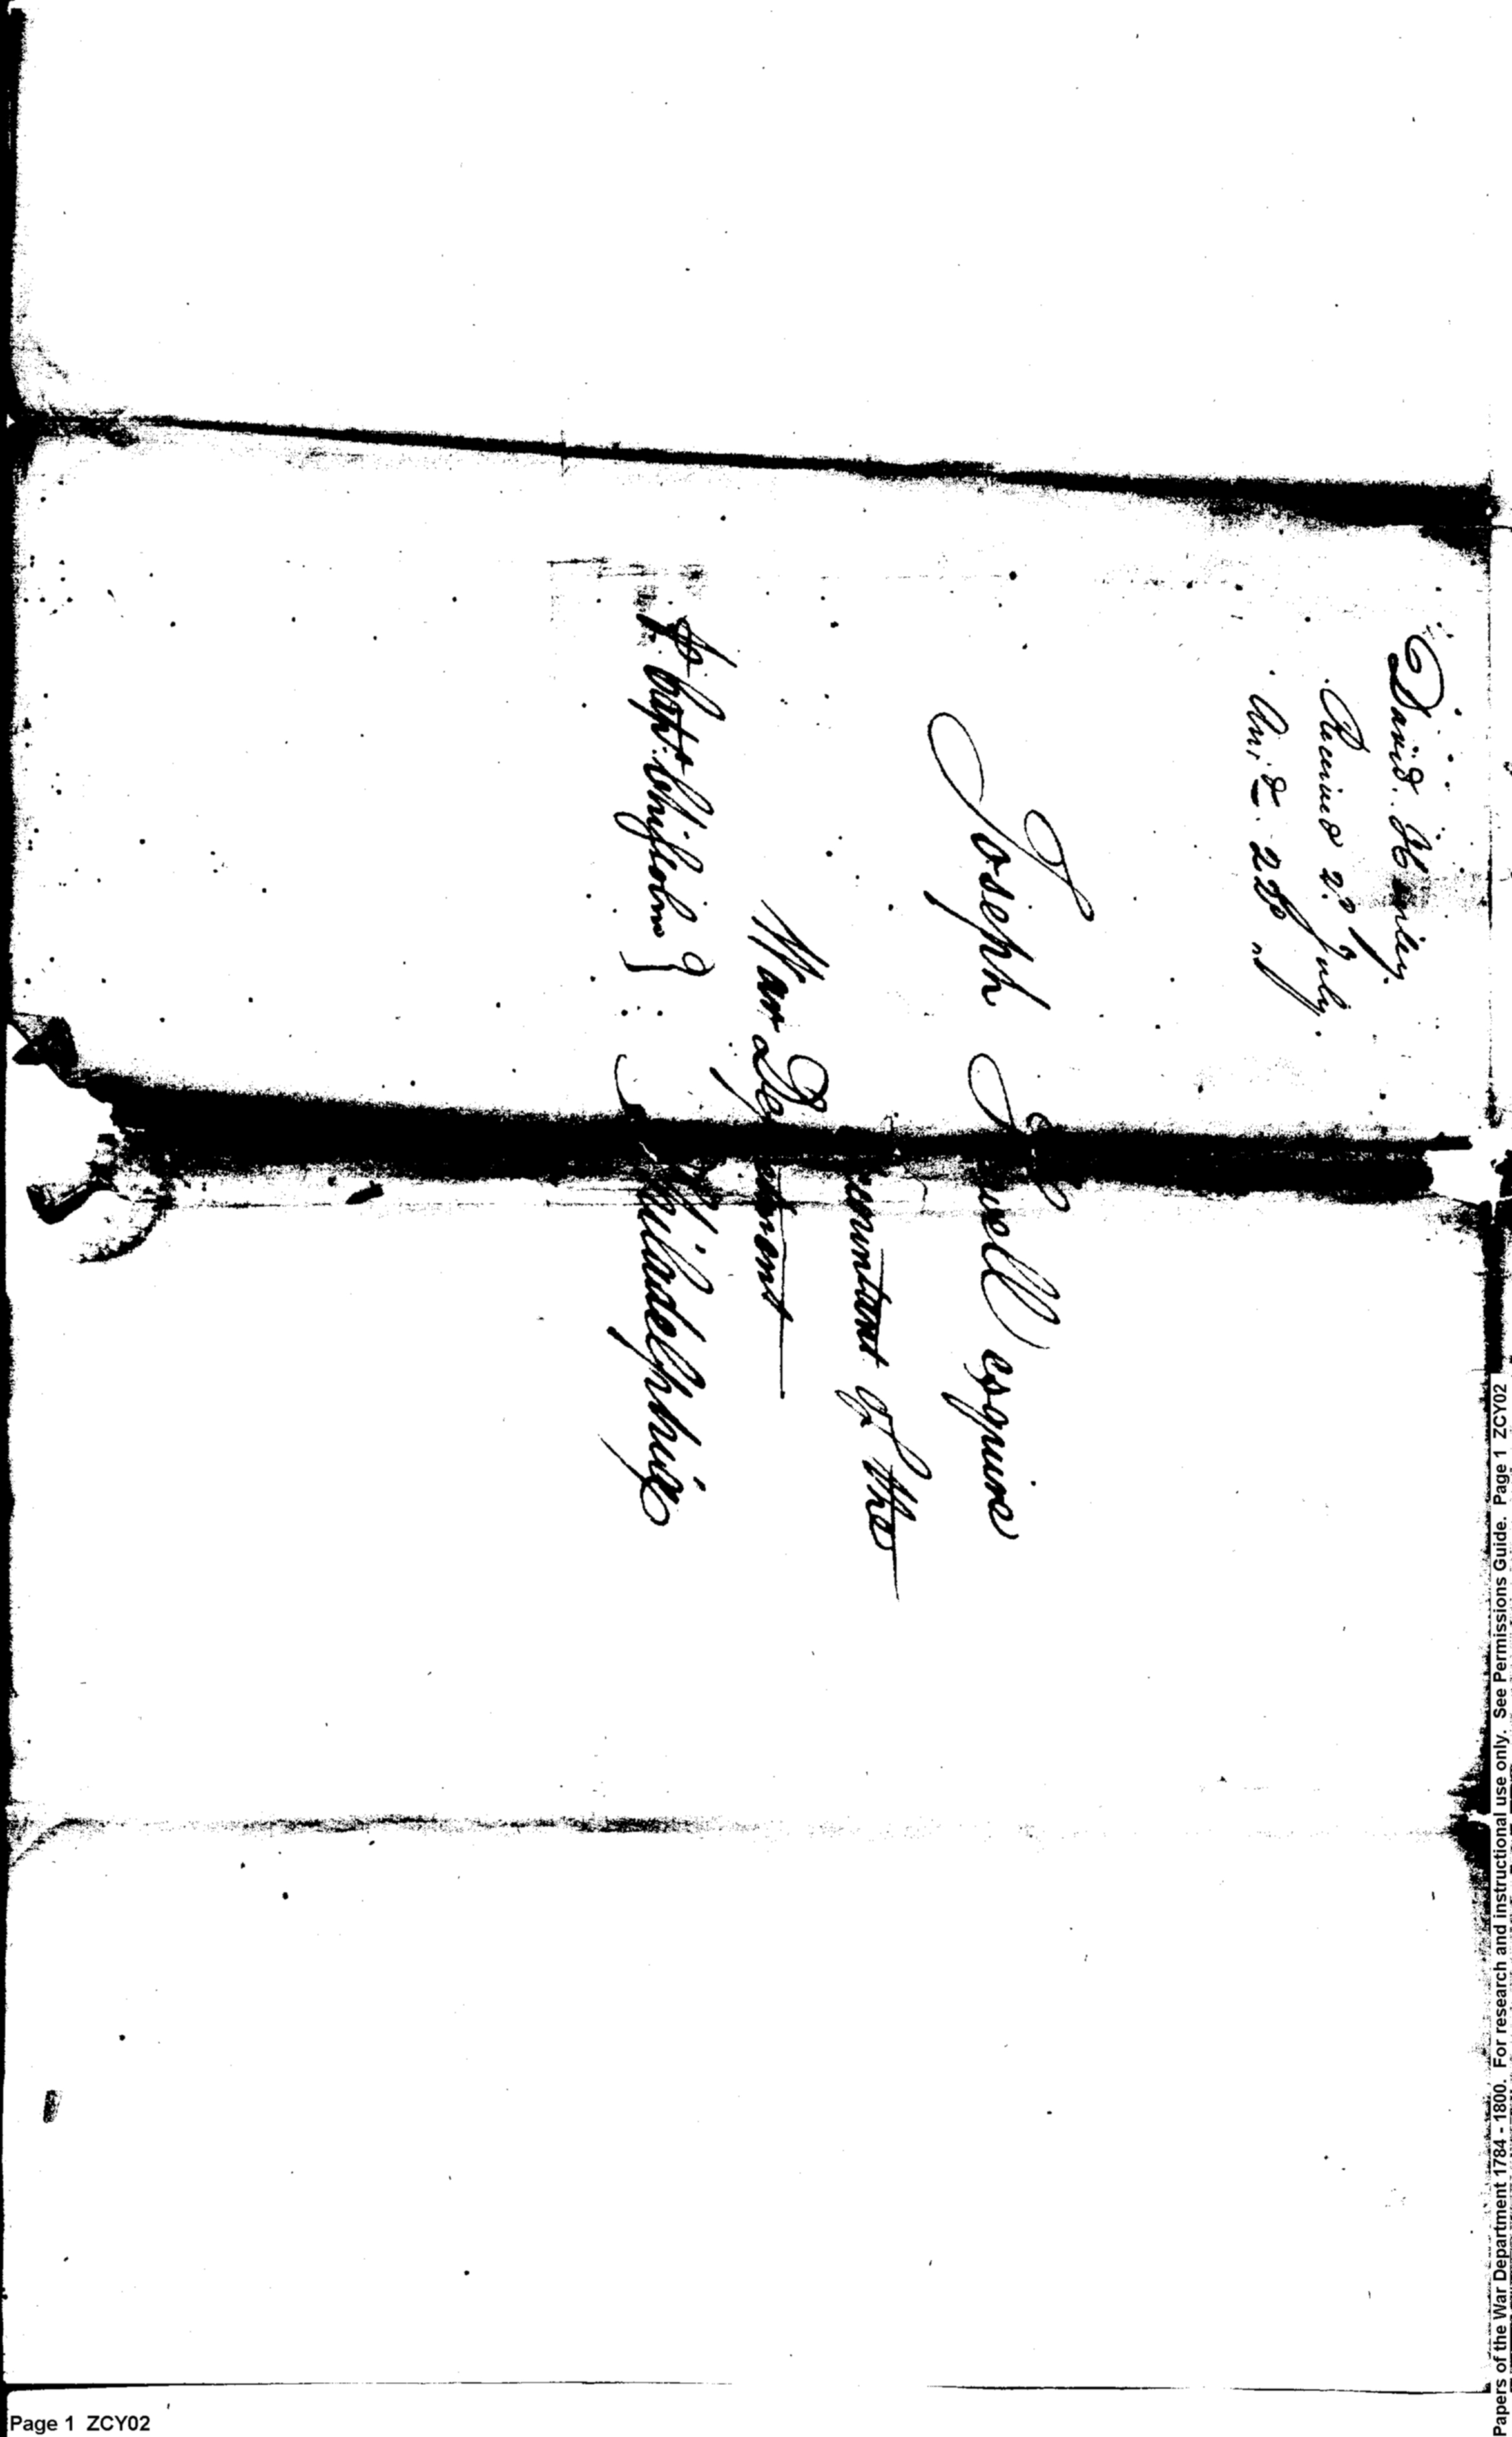 David Henley.
Received 22 July.
Ans.d 28 "
Joseph Howell esquire
Accountant of the
War Department
Philadelphia
Capt. Chisholm }
Page 1 ZCY02
Papers of the War Department 1784 - 1800. For research and instructional use only. See Permissions Guide. Page 1 ZCY02